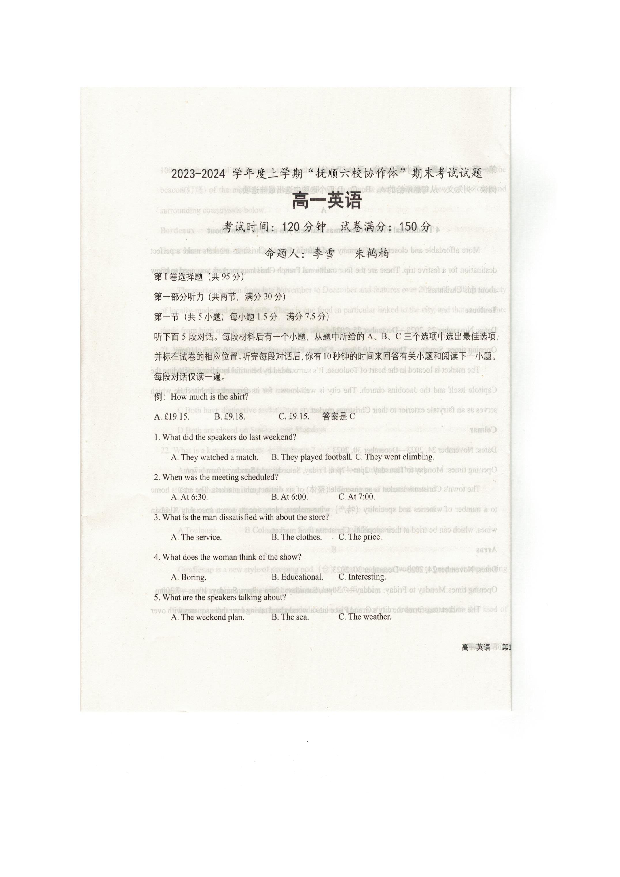 2023-2024 学年度上学期“抚顺六校协作体”期末考试试题
高一英语
考试时间：120分钟 试卷满分：150分
命题人：李雪 朱鹤楠
第Ⅰ卷选择题（共 95 分）
第一部分听力（共两节，满分 30 分）
第一节（共 5 小题；每小题 1.5 分 满分 7.5 分）
听下面 5 段对话。每段材料后有一个小题，从题中所给的 A、B、C 三个选项中选出最佳选项，
并标在试卷的相应位置。听完每段对话后，你有 10 秒钟的时间来回答有关小题和阅读下一小题。
每段对话仅读一遍。
例：How much is the shirt?
A. £19.15. B. £9.18. C. £9.15. 答案是 C
1. What did the speakers do last weekend?
A. They watched a match. B. They played football. C. They went climbing.
2. When was the meeting scheduled?
A. At 6:30. B. At 6:00. C At 7:00.
3. What is the man dissatisfied with about the store?
A. The service. B. The clothes. C. The price.
4. What does the woman think of the show?
A. Boring. B. Educational. C. Interesting.
5. What are the speakers talking about?
A. The weekend plan. B. The sea. C. The weather.
高一英语 第1